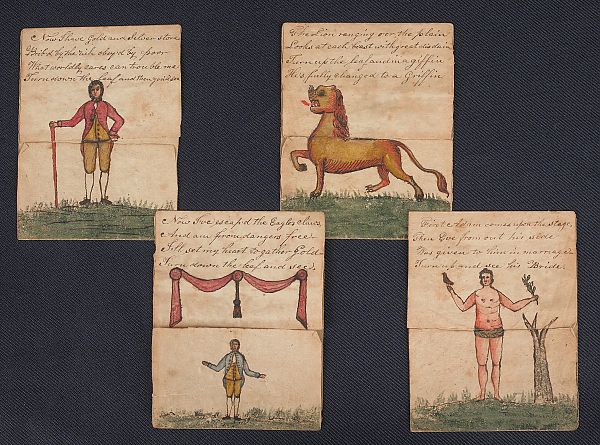 Now I have Gold and Silver store
Brib'd by the rich obey'd by poor
What worldly cares can trouble me
Turn down the leaf and then you'll see
The Lion ranging o'er the plain
Looks at each beast with great disdain
Turn up the leaf and in a giffin
He's fully changed to a Griffin
Now I've escap'd the Eagles claws
And am from dangers free
I'll set my heart to gather Gold
Turn down the leaf and see
First Adam comes upon the stage
Then Eve from out his side
Was given to him in marriage
Turn up and see his Bride